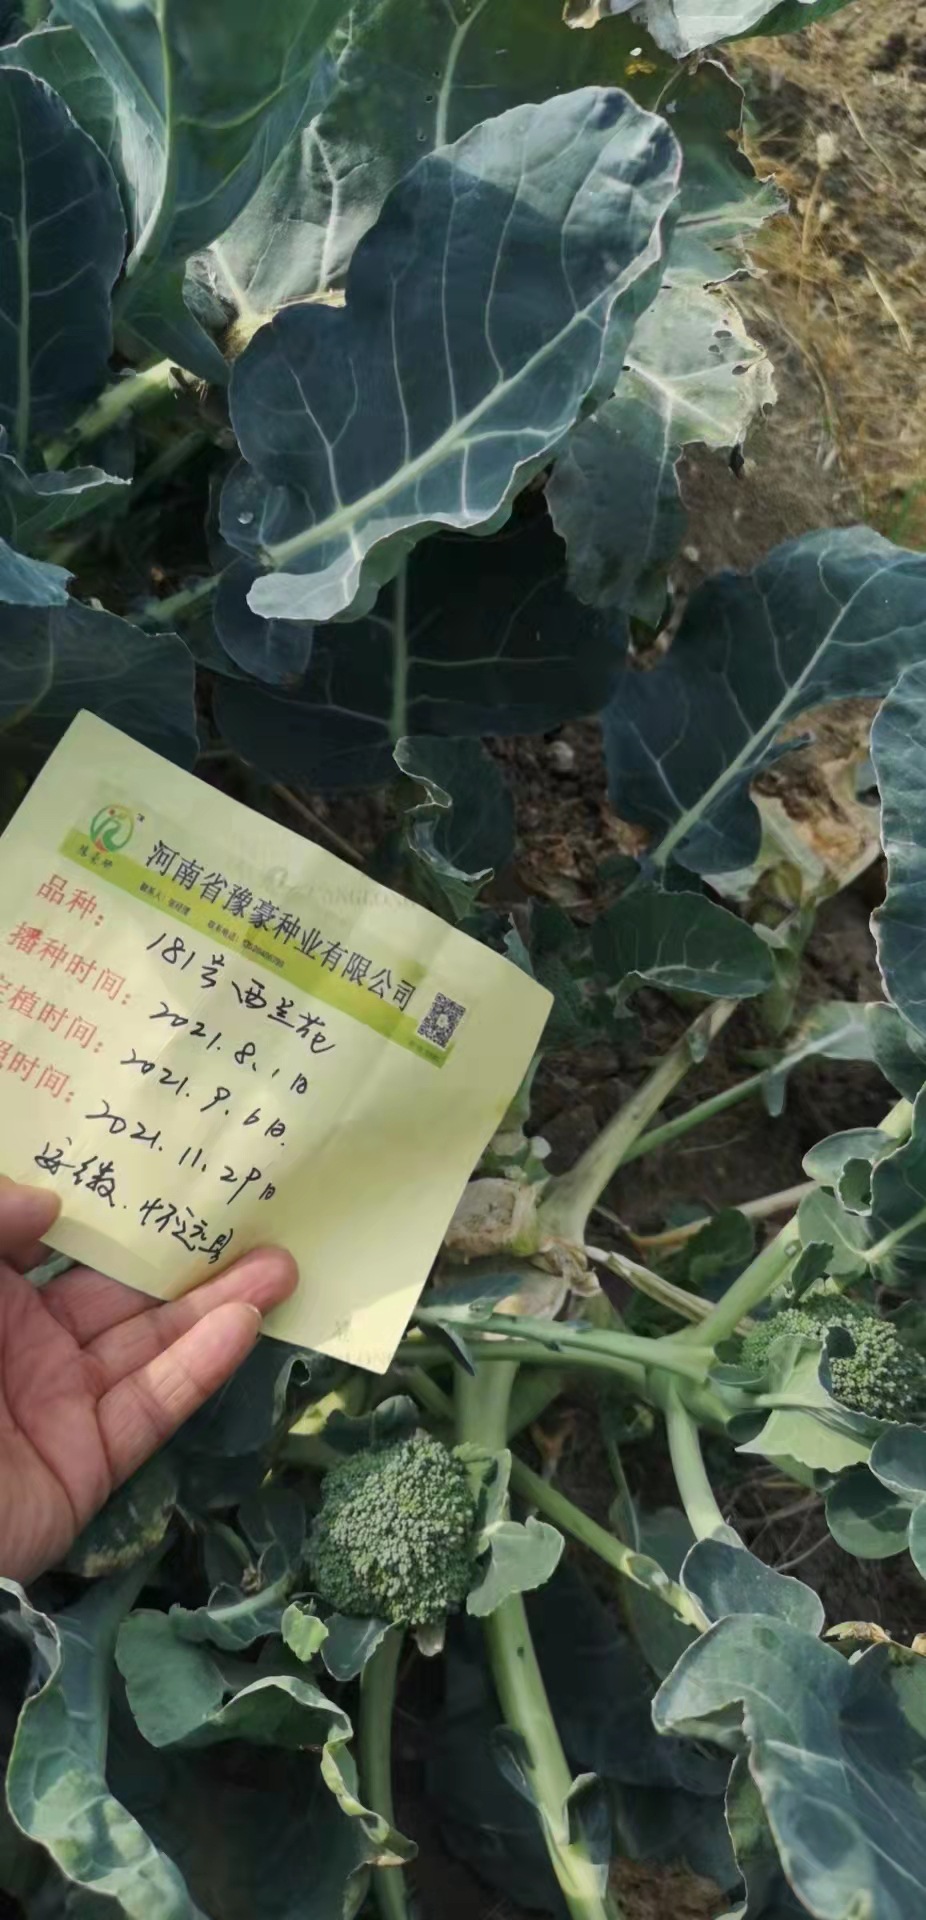 豫豪种
河南省豫豪种业有限公司
联系人：
联系电话：
品种： 181号西兰花
播种时间： 2021.8.1日
定植时间： 2021.9.6日.
照时间： 2021.11.29日
安徽.怀远县